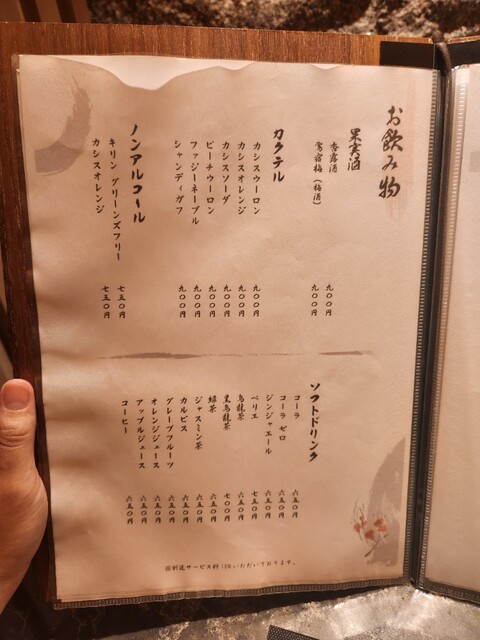 お飲み物
果実酒
杏露酒 九〇〇円
鶯宿梅（梅酒） 九〇〇円
カクテル
カシスウーロン 九〇〇円
カシスオレンジ 九〇〇円
カシスソーダ 九〇〇円
ピーチウーロン 九〇〇円
ファジーネーブル 九〇〇円
シャンディガフ 九〇〇円
ノンアルコール
キリン グリーンズフリー 七五〇円
カシスオレンジ 七五〇円
ソフトドリンク
コーラ 六五〇円
コーラ ゼロ 六五〇円
ジンジャエール 六五〇円
ペリエ 七五〇円
烏龍茶 六五〇円
黒烏龍茶 七〇〇円
緑茶 六五〇円
ジャスミン茶 六五〇円
カルピス 六五〇円
グレープフルーツ 六五〇円
オレンジジュース 六五〇円
アップルジュース 六五〇円
コーヒー 六五〇円
※別途サービス料 いただいております。